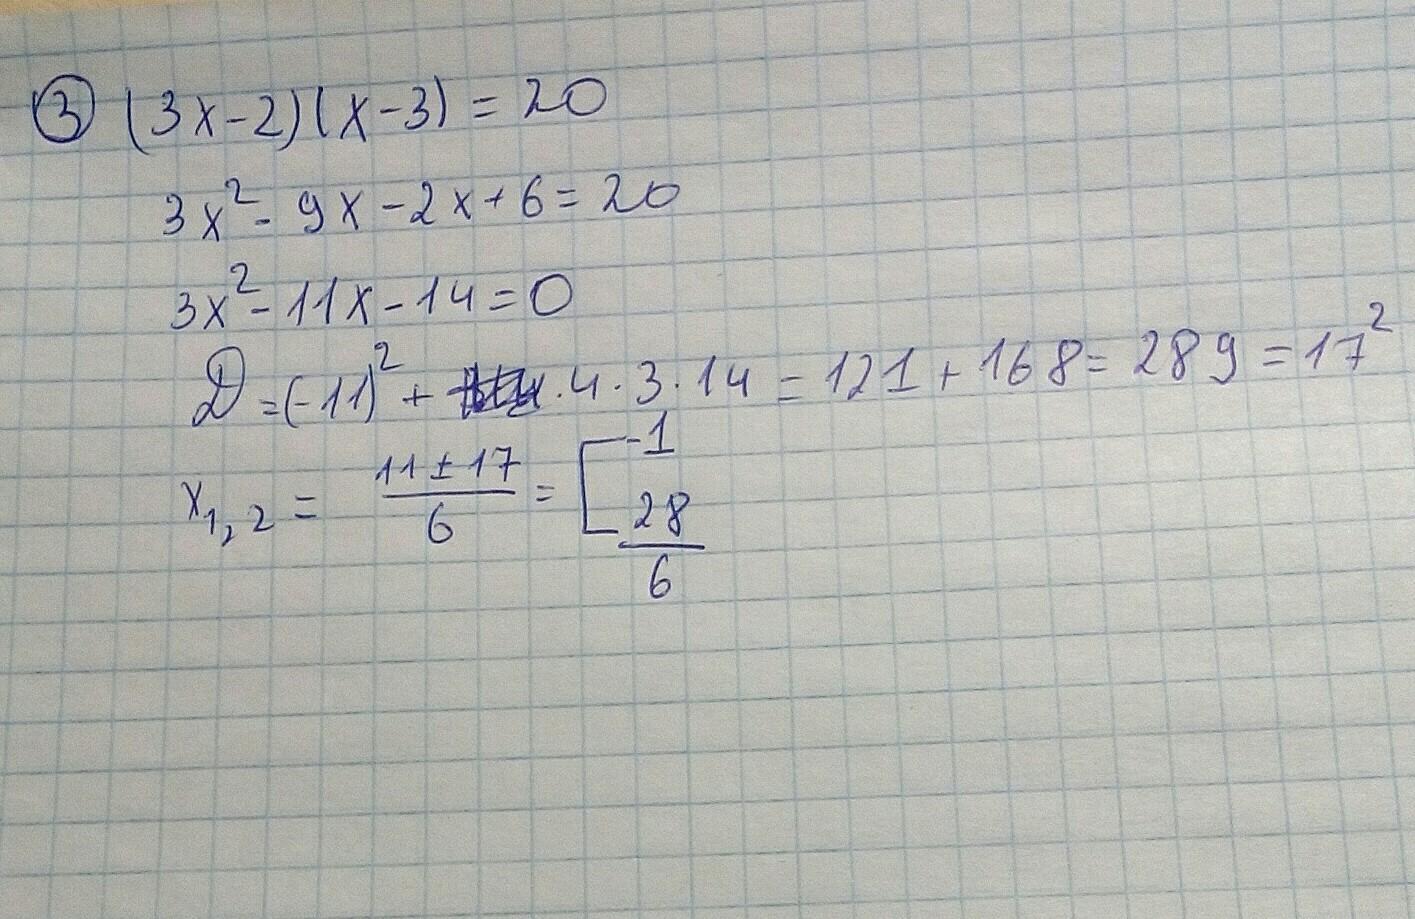 ③ (3x-2)(x-3) = 20
3x² - 9x - 2x + 6 = 20
3x² - 11x - 14 = 0
D = (-11)² + · 4 · 3 · 14 = 121 + 168 = 289 = 17²
x₁,₂ = (11 ± 17)/6 = [ -1
28/6